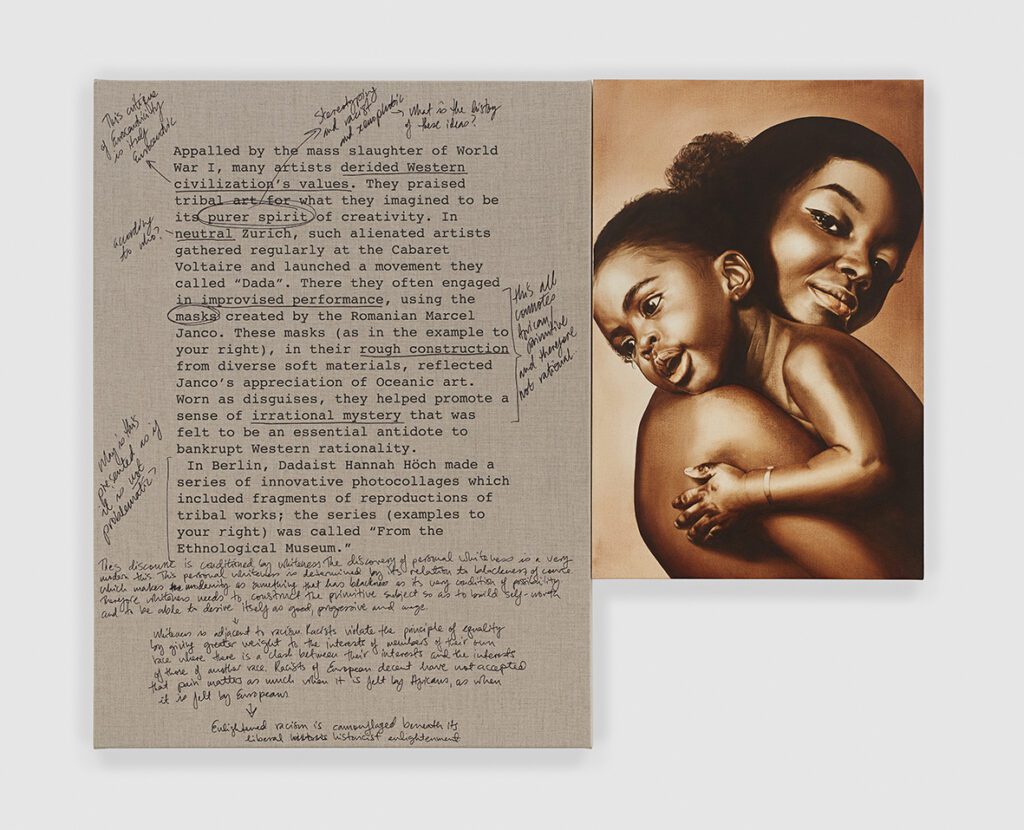 This critique
of Eurocentricity
is itself
Eurocentric
stereotyping
and racist
and xenophobic
what is the history
of these ideas?
Appalled by the mass slaughter of World
War I, many artists derided Western
civilization's values. They praised
tribal art for what they imagined to be
its purer spirit of creativity. In
neutral Zurich, such alienated artists
gathered regularly at the Cabaret
Voltaire and launched a movement they
called "Dada". There they often engaged
in improvised performance, using the
masks created by the Romanian Marcel
Janco. These masks (as in the example to
your right), in their rough construction
from diverse soft materials, reflected
Janco's appreciation of Oceanic art.
Worn as disguises, they helped promote a
sense of irrational mystery that was
felt to be an essential antidote to
bankrupt Western rationality.
In Berlin, Dadaist Hannah Höch made a
series of innovative photocollages which
included fragments of reproductions of
tribal works; the series (examples to
your right) was called "From the
Ethnological Museum."
according
to who?
this all
connotes
African/
primitive
and therefore
not rational.
Why is this
presented as if
it is not
problematic?
This discourse is conditioned by whiteness. The discovery of personal whiteness is a very
modern thing. This personal whiteness is determined by its relation to blackness of course
which makes modernity as something that has blackness as its very condition of possibility
Therefore whiteness needs to construct the primitive subject so as to build self-worth
and to be able to desire itself as good, progressive and
Whiteness is adjacent to racism. Racists violate the principle of equality
by giving greater weight to the interests of members of their own
race where there is a clash between their interests and the interests
of those of another race. Racists of European decent have not accepted
that pain matters as much when it is felt by Africans, as when
it is felt by Europeans
Enlightened racism is camouflaged beneath its
liberal historicist enlightenment